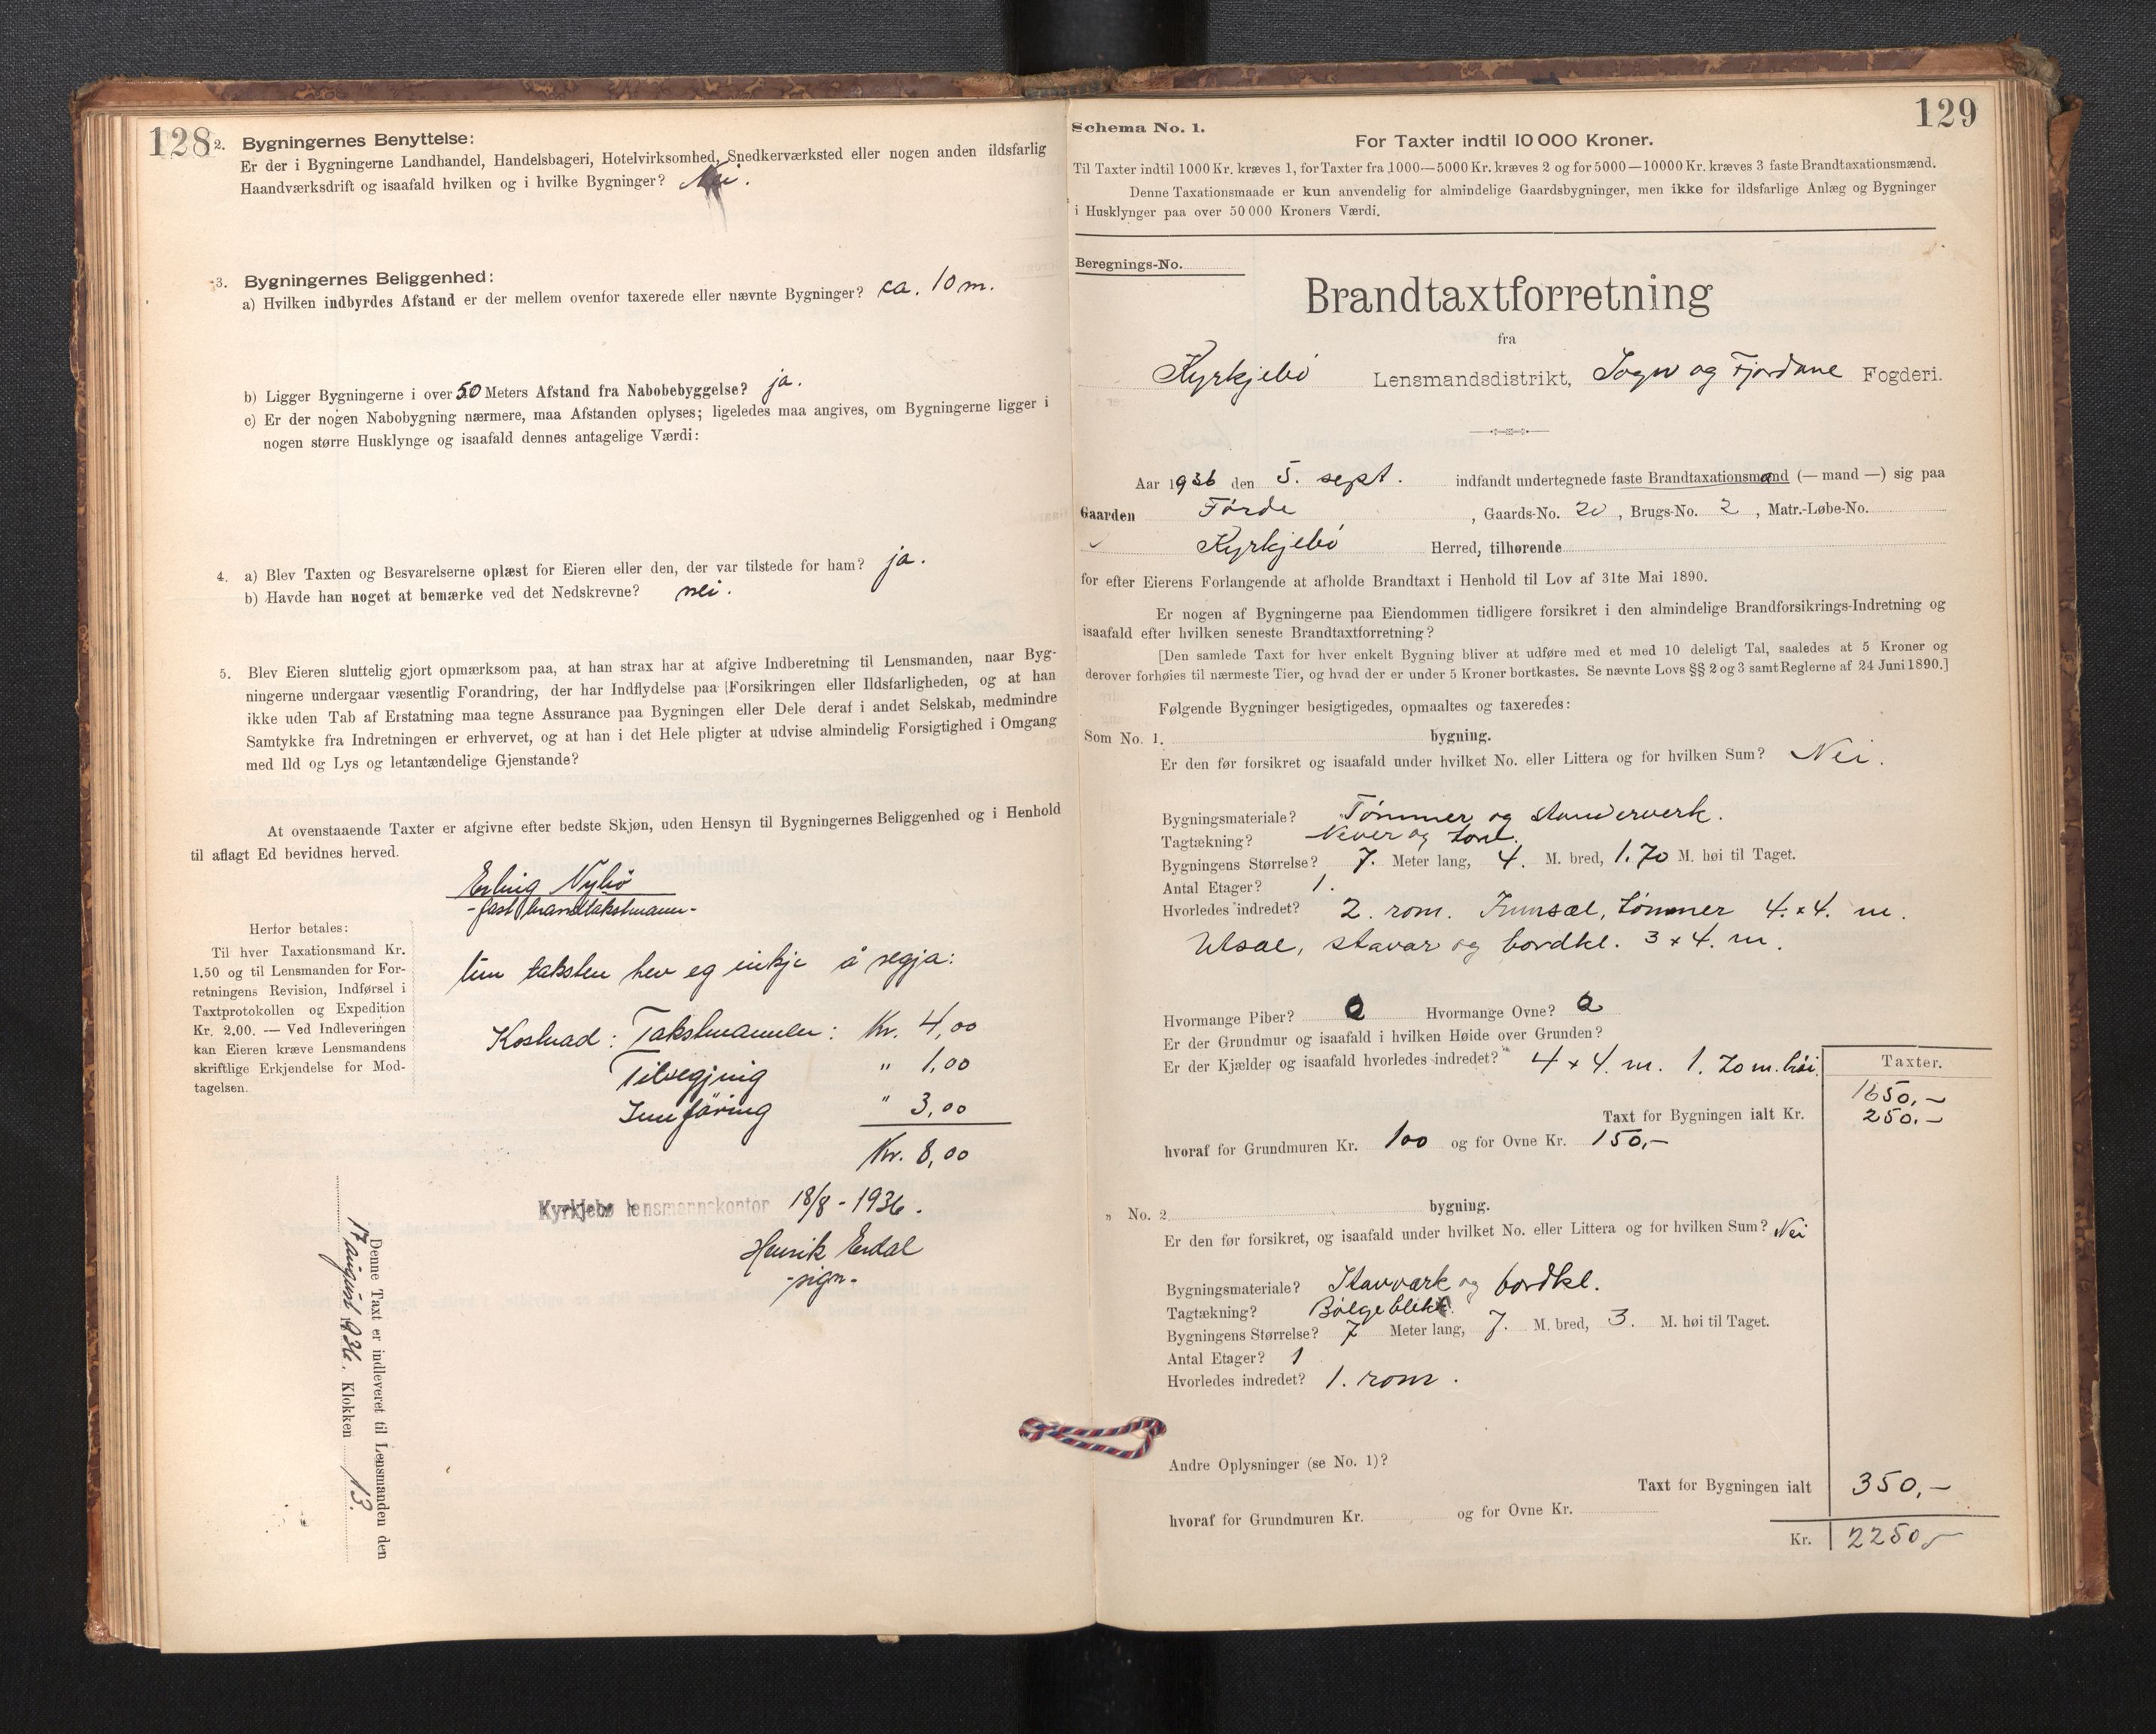 128
2. Bygningernes Benyttelse:
Er der i Bygningerne Landhandel, Handelsbageri, Hotelvirksomhed, Snedkerværksted eller nogen anden ildsfarlig
Haandværksdrift og isaafald hvilken og i hvilke Bygninger? Nei.
3. Bygningernes Beliggenhed:
a) Hvilken indbyrdes Afstand er der mellem ovenfor taxerede eller nævnte Bygninger? ca. 10 m.
b) Ligger Bygningerne i over 50 Meters Afstand fra Nabobebyggelse? ja.
c) Er der nogen Nabobygning nærmere, maa Afstanden oplyses; ligeledes maa angives, om Bygningerne ligger i
nogen større Husklynge og isaafald dennes antagelige Værdi:
4. a) Blev Taxten og Besvarelserne oplæst for Eieren eller den, der var tilstede for ham? ja.
b) Havde han noget at bemærke ved det Nedskrevne? nei.
5. Blev Eieren sluttelig gjort opmærksom paa, at han strax har at afgive Indberetning til Lensmanden, naar Byg-
ningerne undergaar væsentlig Forandring, der har Indflydelse paa Forsikringen eller Ildsfarligheden, og at han
ikke uden Tab af Erstatning maa tegne Assurance paa Bygningen eller Dele deraf i andet Selskab, medmindre
Samtykke fra Indretningen er erhvervet, og at han i det Hele pligter at udvise almindelig Forsigtighed i Omgang
med Ild og Lys og letantændelige Gjenstande?
At ovenstaaende Taxter er afgivne efter bedste Skjøn, uden Hensyn til Bygningernes Beliggenhed og i Henhold
til aflagt Ed bevidnes herved.
Erling Nybö
-fast brandtakstmann-
Herfor betales:
Til hver Taxationsmand Kr.
1.50 og til Lensmanden for For-
retningens Revision, Indførsel i
Taxtprotokollen og Expedition
Kr. 2.00. — Ved Indleveringen
kan Eieren kræve Lensmandens
skriftlige Erkjendelse for Mod-
tagelsen.
Um taksten hev eg inkje å segja:
Kostnad: Takstmannen: Kr. 4,00
Tilsegjing " 1,00
Innföring " 3,00
Kr. 8,00
Kyrkjebø lensmannskontor 18/8 - 1936.
Henrik Erdal
-sign-
Denne Taxt er indleveret til Lensmanden den
17 august 1936. Klokken 13.
129
Schema No. 1.
For Taxter indtil 10 000 Kroner.
Til Taxter indtil 1000 Kr. kræves 1, for Taxter fra 1000—5000 Kr. kræves 2 og for 5000—10000 Kr. kræves 3 faste Brandtaxationsmænd.
Denne Taxationsmaade er kun anvendelig for almindelige Gaardsbygninger, men ikke for ildsfarlige Anlæg og Bygninger
i Husklynger paa over 50 000 Kroners Værdi.
Beregnings-No.
Brandtaxtforretning
fra
Kyrkjebö Lensmandsdistrikt, Sogn og Fjordane Fogderi.
Aar 1936 den 5. sept. indfandt undertegnede faste Brandtaxationsmand (— mand —) sig paa
Gaarden Förde, Gaards-No. 20, Brugs-No. 2, Matr.-Løbe-No.
Kyrkjebö Herred, tilhørende
for efter Eierens Forlangende at afholde Brandtaxt i Henhold til Lov af 31te Mai 1890.
Er nogen af Bygningerne paa Eiendommen tidligere forsikret i den almindelige Brandforsikrings-Indretning og
isaafald efter hvilken seneste Brandtaxtforretning?
[Den samlede Taxt for hver enkelt Bygning bliver at udføre med et med 10 deleligt Tal, saaledes at 5 Kroner og
derover forhøies til nærmeste Tier, og hvad der er under 5 Kroner bortkastes. Se nævnte Lovs §§ 2 og 3 samt Reglerne af 24 Juni 1890.]
Følgende Bygninger besigtigedes, opmaaltes og taxeredes:
Som No. 1. bygning.
Er den før forsikret og isaafald under hvilket No. eller Littera og for hvilken Sum? Nei.
Bygningsmateriale? Tömmer og standerverk.
Tagtækning? Never og torv.
Bygningens Størrelse? 7. Meter lang, 4. M. bred, 1.70 M. høi til Taget.
Antal Etager? 1.
Hvorledes indredet? 2. rom. Innsæl, tömmer 4. x 4. m.
Utsæl, stavar og bordkl. 3 x 4. m.
Hvormange Piber? 0 Hvormange Ovne? 0
Er der Grundmur og isaafald i hvilken Høide over Grunden?
Er der Kjælder og isaafald hvorledes indredet? 4 x 4. m. 1.70 m. höi.
Taxter.
1650,-
Taxt for Bygningen ialt Kr. 250,-
hvoraf for Grundmuren Kr. 100 og for Ovne Kr. 150,-
" No. 2 bygning.
Er den før forsikret, og isaafald under hvilket No. eller Littera og for hvilken Sum? Nei
Bygningsmateriale? Stavverk og bordkl.
Tagtækning? Bölgeblikk.
Bygningens Størrelse? 7 Meter lang, 7. M. bred, 3. M. høi til Taget.
Antal Etager? 1
Hvorledes indredet? 1. rom.
Andre Oplysninger (se No. 1)?
Taxt for Bygningen ialt 350,-
hvoraf for Grundmuren Kr. og for Ovne Kr.
Kr. 2250,-